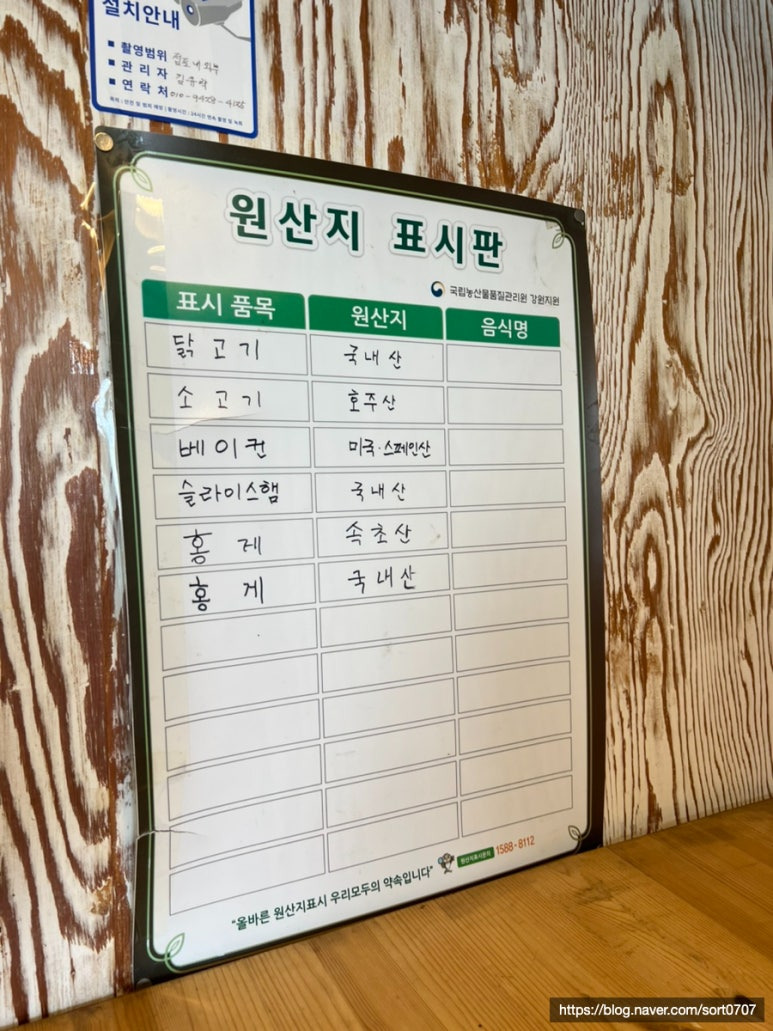 설치안내
■ 촬영범위 점포내외부
■ 관 리 자
■ 연 락 처
원산지 표시판
국립농산물품질관리원 강원지원
표시 품목 원산지 음식명
닭고기 국내산
소고기 호주산
베이컨 미국·스페인산
슬라이스햄 국내산
홍 게 속초산
홍 게 국내산
"올바른 원산지표시 우리모두의 약속입니다" 원산지표시문의 1588-8112
https://blog.naver.com/sort0707